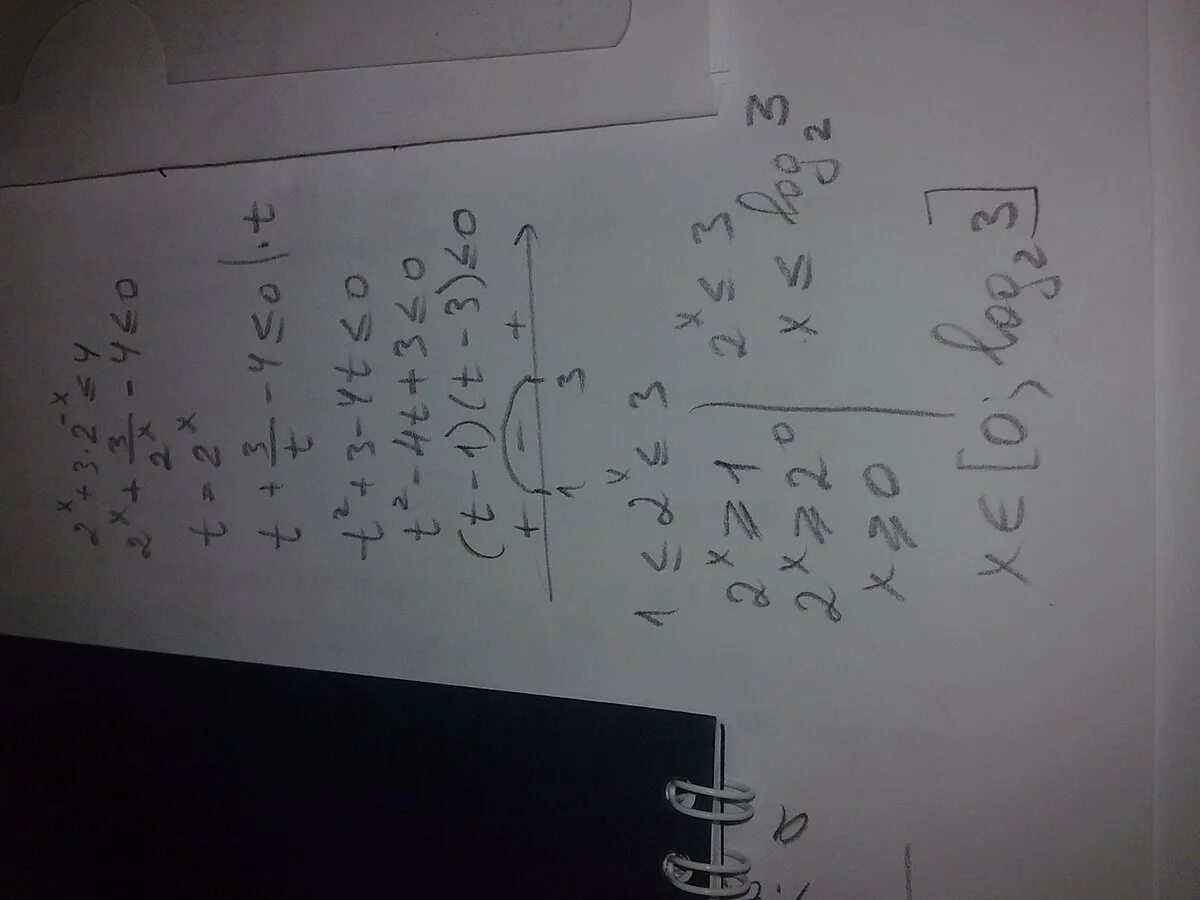 2^x + 3·2^-x ≤ 4
2^x + 3/2^x - 4 ≤ 0
t = 2^x
t + 3/t - 4 ≤ 0 |·t
t² + 3 - 4t ≤ 0
t² - 4t + 3 ≤ 0
(t - 1)(t - 3) ≤ 0
+ - +
1 3
1 ≤ 2^x ≤ 3
2^x ⩾ 1 | 2^x ≤ 3
2^x ⩾ 2^0 | x ≤ log₂3
x ⩾ 0
x ∈ [0; log₂3]